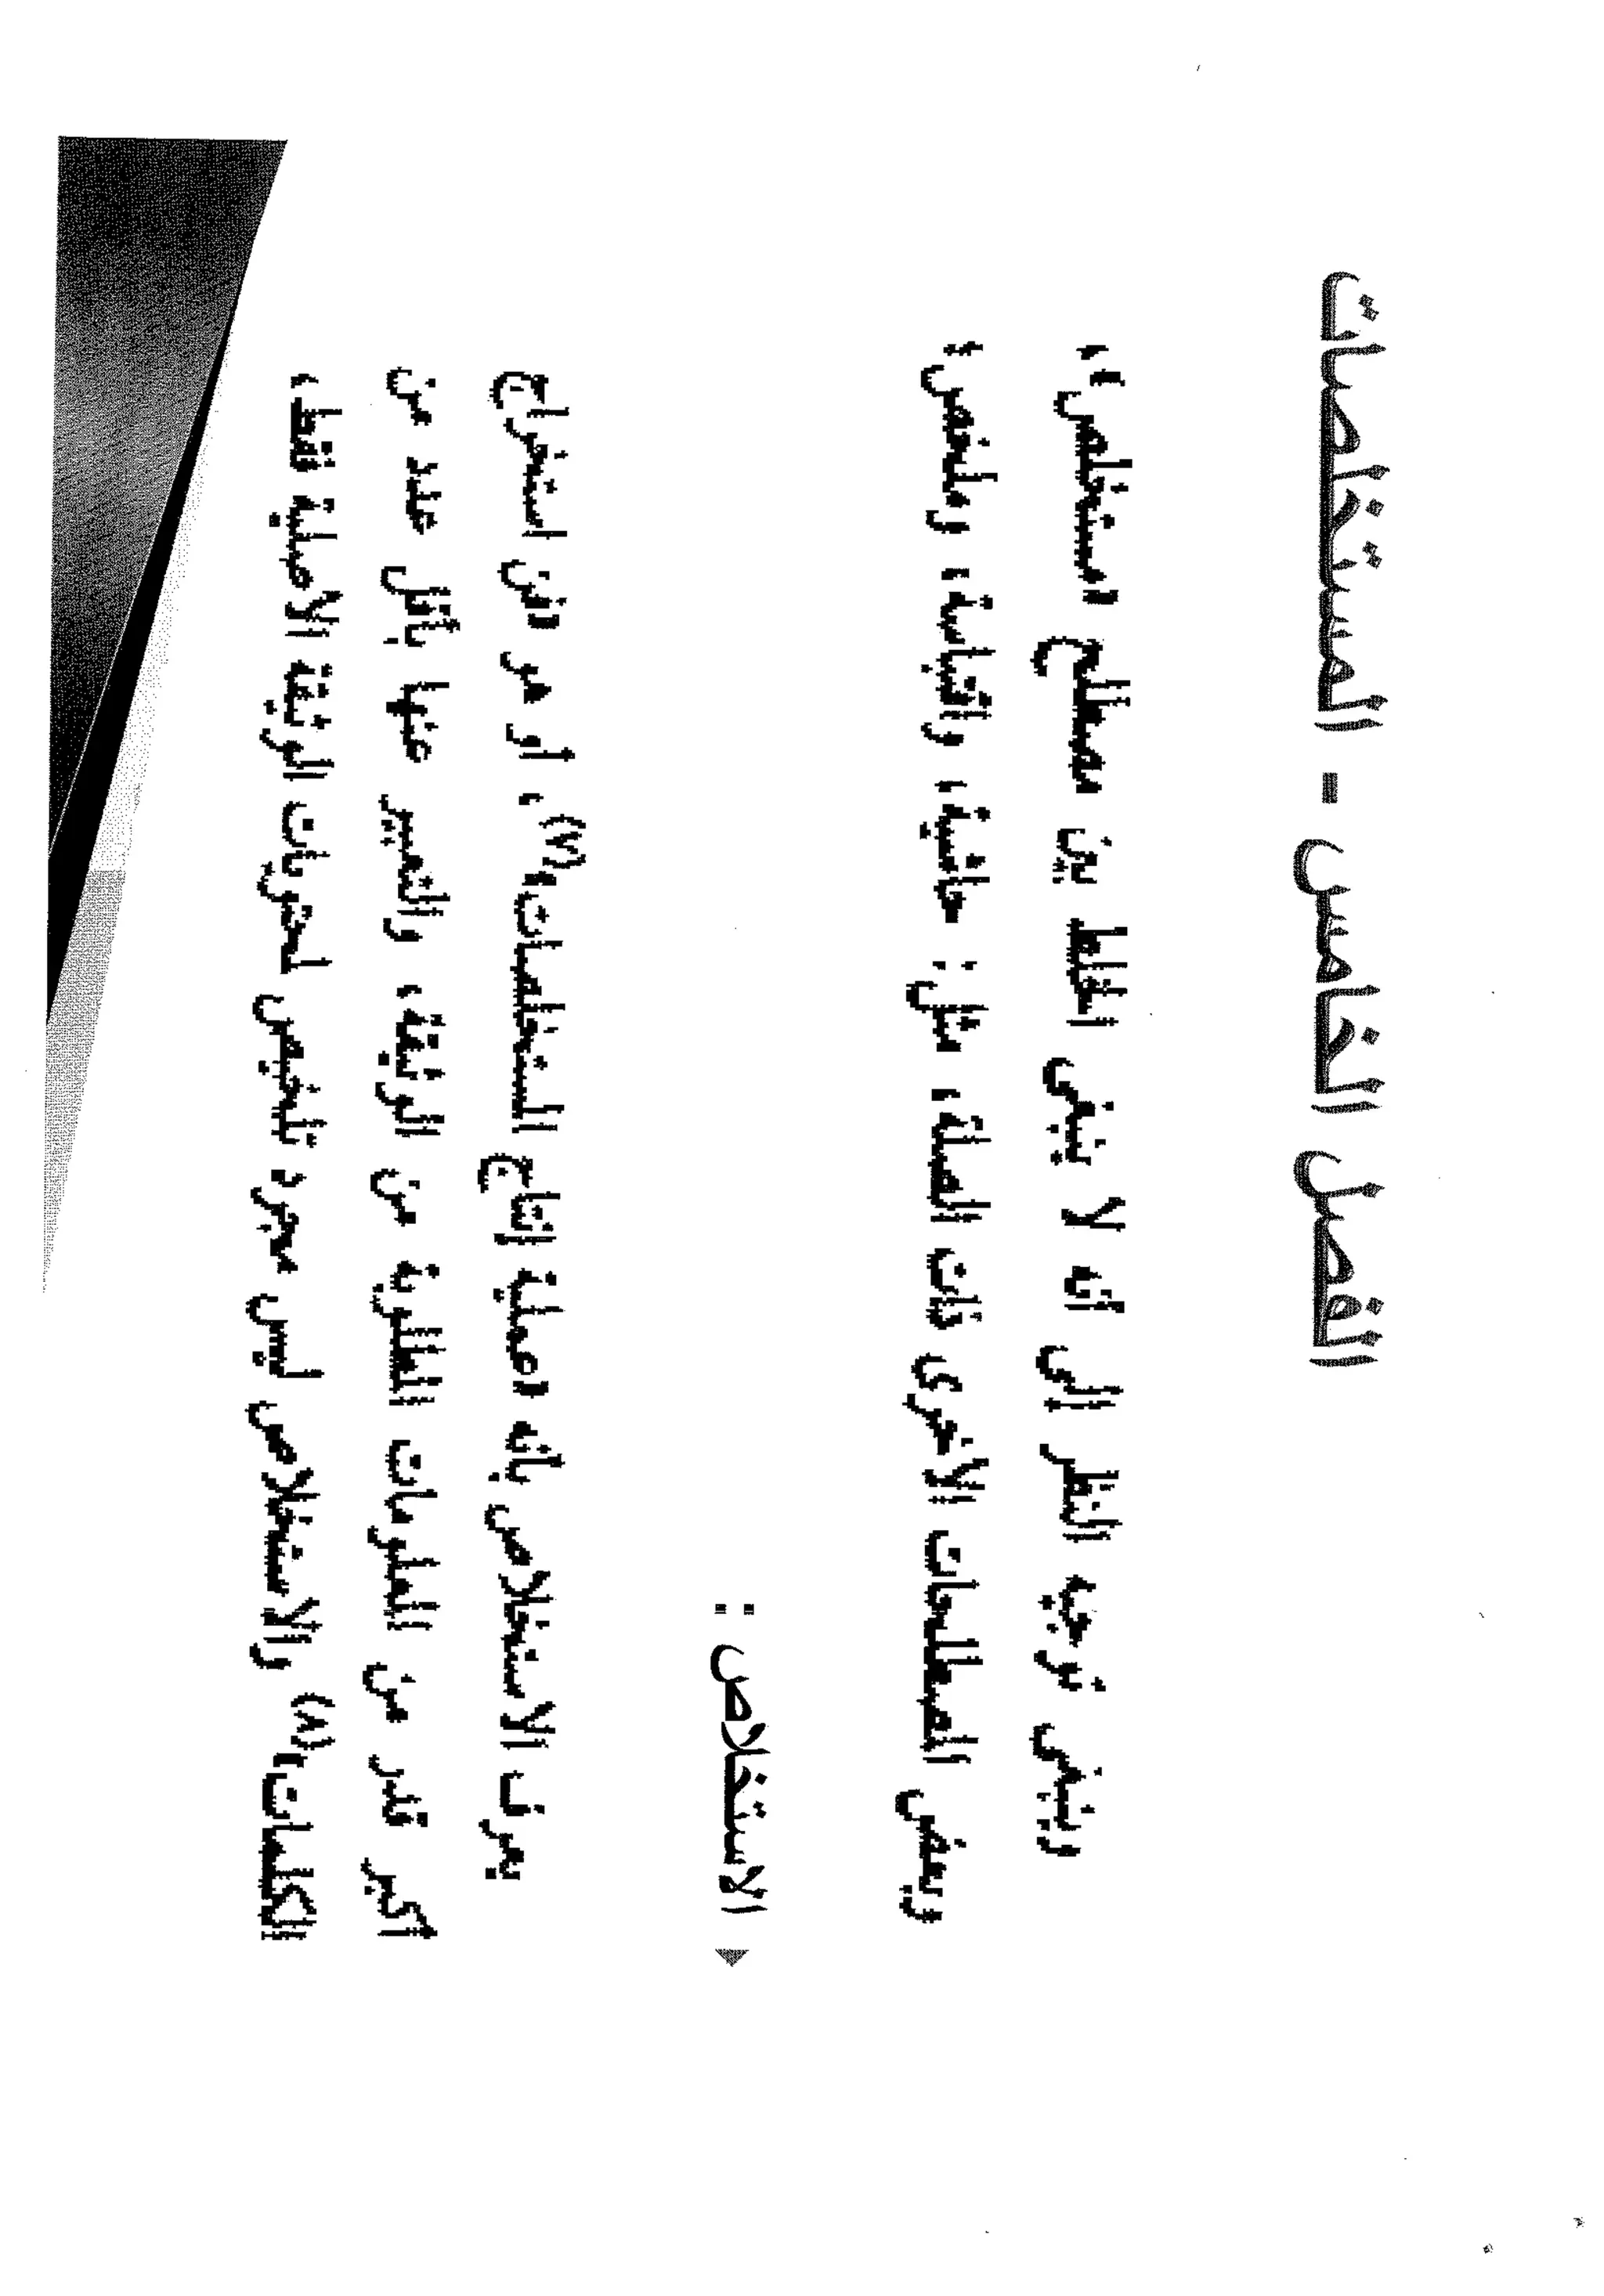 الفصل الخامس - المستخلصات
وينبغى توجيه النظر إلى أنه لا ينبغى الخلط بين مصطلح «مستخلص»،
وبعض المصطلحات الأخرى ذات الصلة، مثل: حاشية، واقتباسة، وملخص؛
الاستخلاص :
يعرف الاستخلاص بأنه «عملية إنتاج المستخلصات»(٧)، أو هو «فن استخراج
أكبر قدر من المعلومات المطلوبة من الوثيقة، والتعبير عنها بأقل عدد من
الكلمات»(٨) والاستخلاص ليس مجرد تلخيص لمحتويات الوثيقة الأصلية فقط،